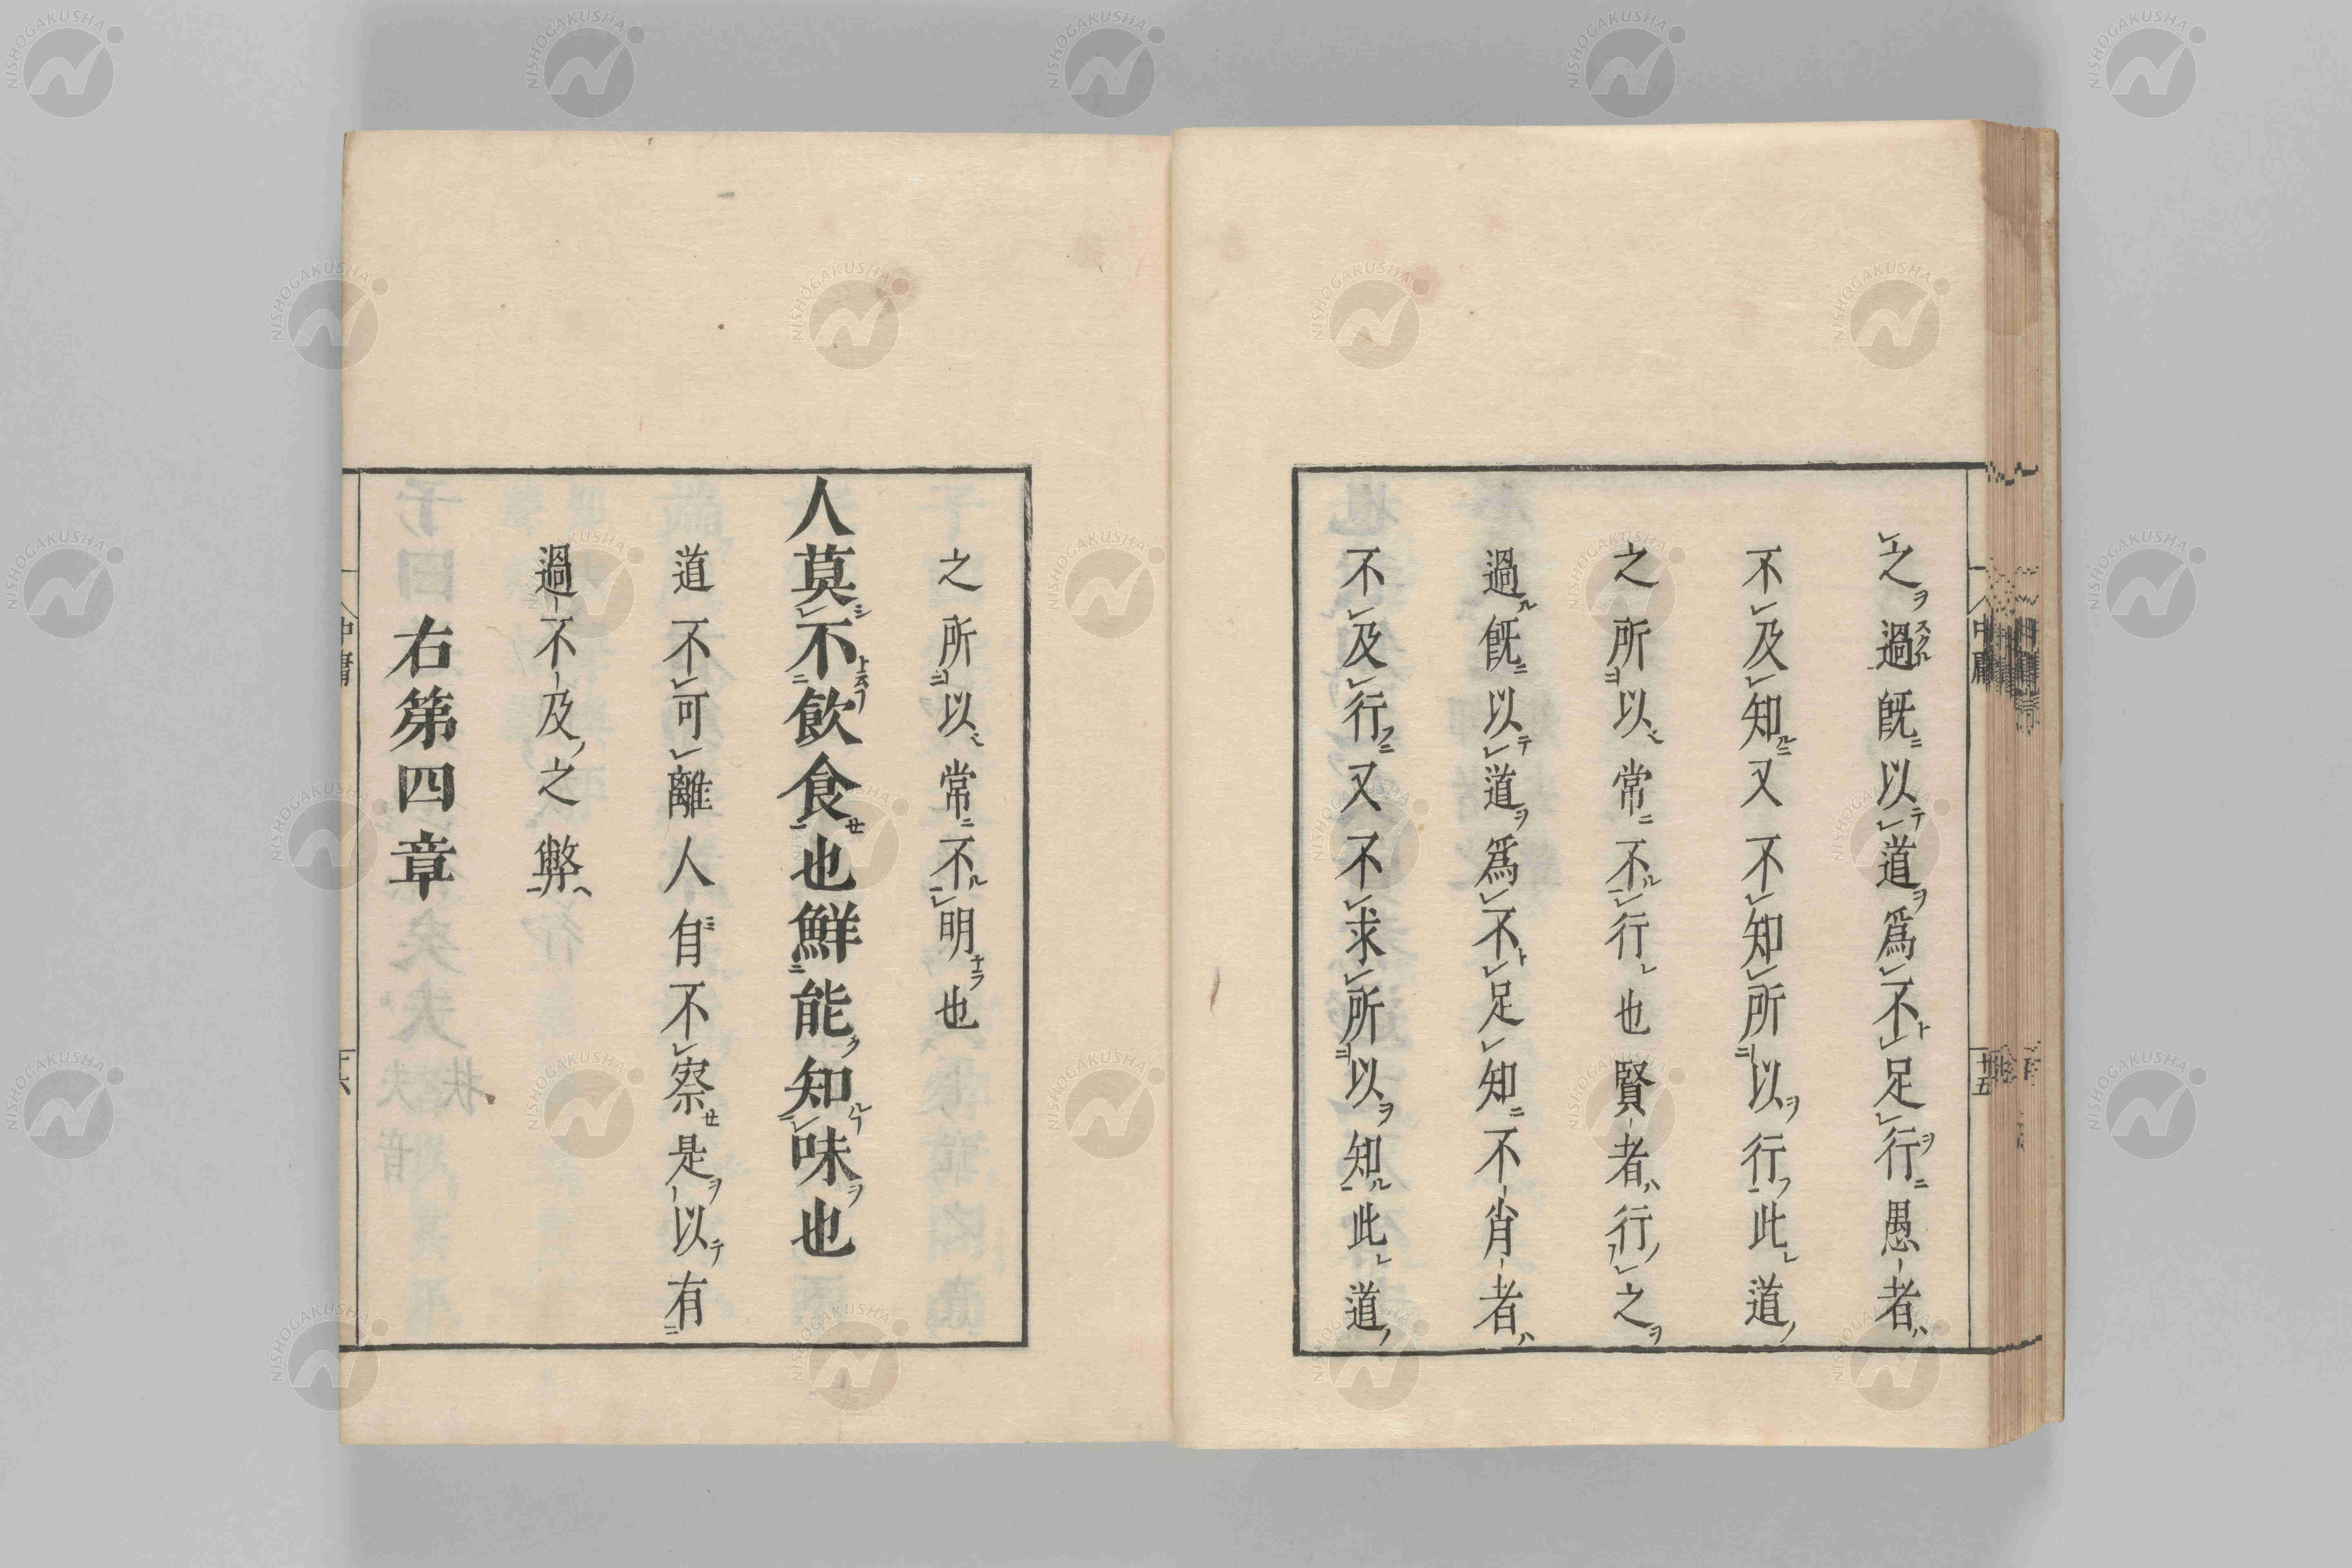 之過既以道為不足行愚者
不及知又不知所以行此道
之所以常不行也賢者行之
過既以道為不足知不肖者
不及行又不求所以知此道
之所以常不明也
人莫不飲食也鮮能知味也
道不可離人自不察是以有
過不及之弊
右第四章
中庸
十五